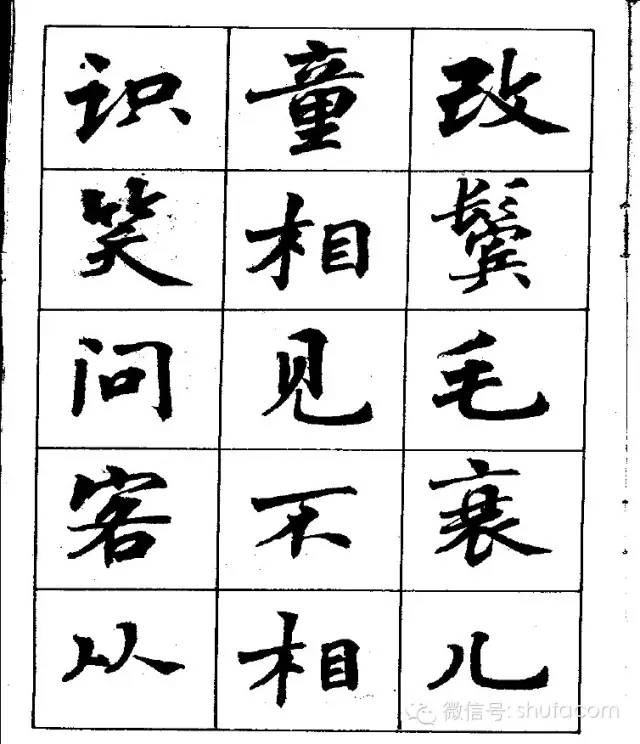 改鬓毛衰儿
童相见不相
识笑问客从
微信号: shufacom